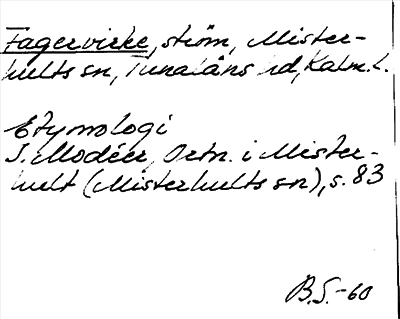 Fagervirke, ström, Mister-
hults sn, Tunaläns hd, Kalm. l.
Etymologi
I. Modéer, Ortn. i Mister-
hult (Misterhults sn), s. 83
B.S.-60